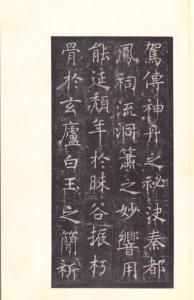 駕傳神丹之秘決秦都
鳳祠流洞簫之妙響用
能延頹年於昧谷振朽
骨於玄廬白玉之簡祈